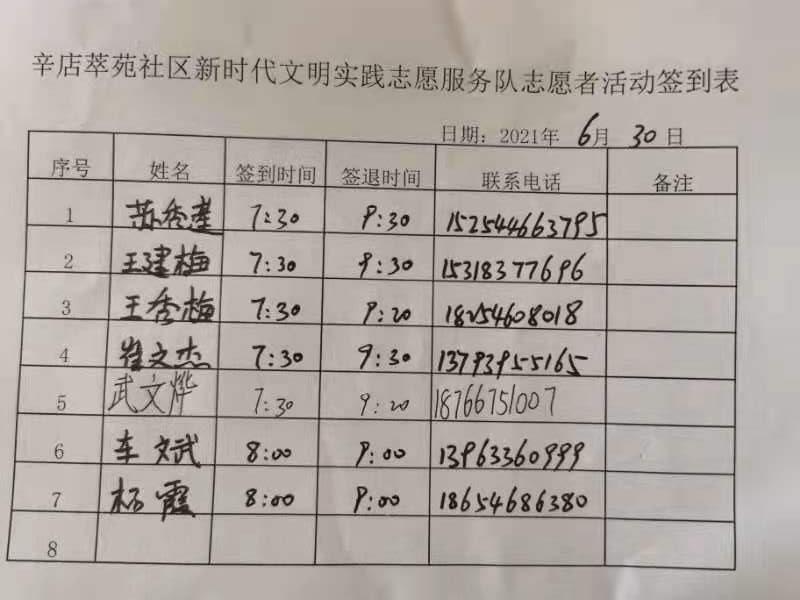 辛店萃苑社区新时代文明实践志愿服务队志愿者活动签到表
日期：2021年 6月 30日
序号 姓名 签到时间 签退时间 联系电话 备注
1 苏秀莲 7:30 9:30 152544663795
2 王建梅 7:30 9:30 15318377696
3 王秀梅 7:30 9:20 18254608018
4 崔文杰 7:30 9:30 13793955165
5 武文烨 7:30 9:20 18766751007
6 车文武 8:00 9:00 13963360999
7 杨霞 8:00 9:00 18654686380
8